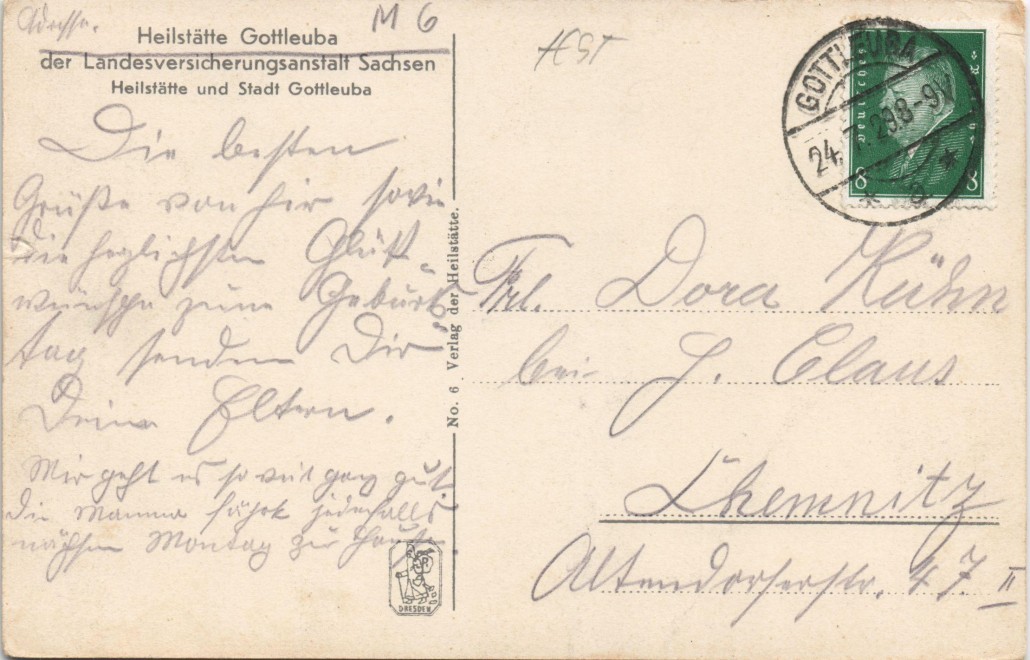 Adresse.
M 6
Heilstätte Gottleuba
der Landesversicherungsanstalt Sachsen
Heilstätte und Stadt Gottleuba
Die besten
Grüße von hir sowie
die herzlichsten Glück-
wünsche zum Geburts
tag senden Dir
Deine Eltern.
Mir geht es so weit ganz gut
die Mamma fährt jedenfalls
nächsen Montag zur Hause.
No. 6 Verlag der Heilstätte.
DRESDEN
GOTTLEUBA
24.7.29.8-9V
* a *
Deutsches Reich
8 8
Frl. Dora Kühn
bei J. Claus
Chemnitz
Altendorferstr. 47. II